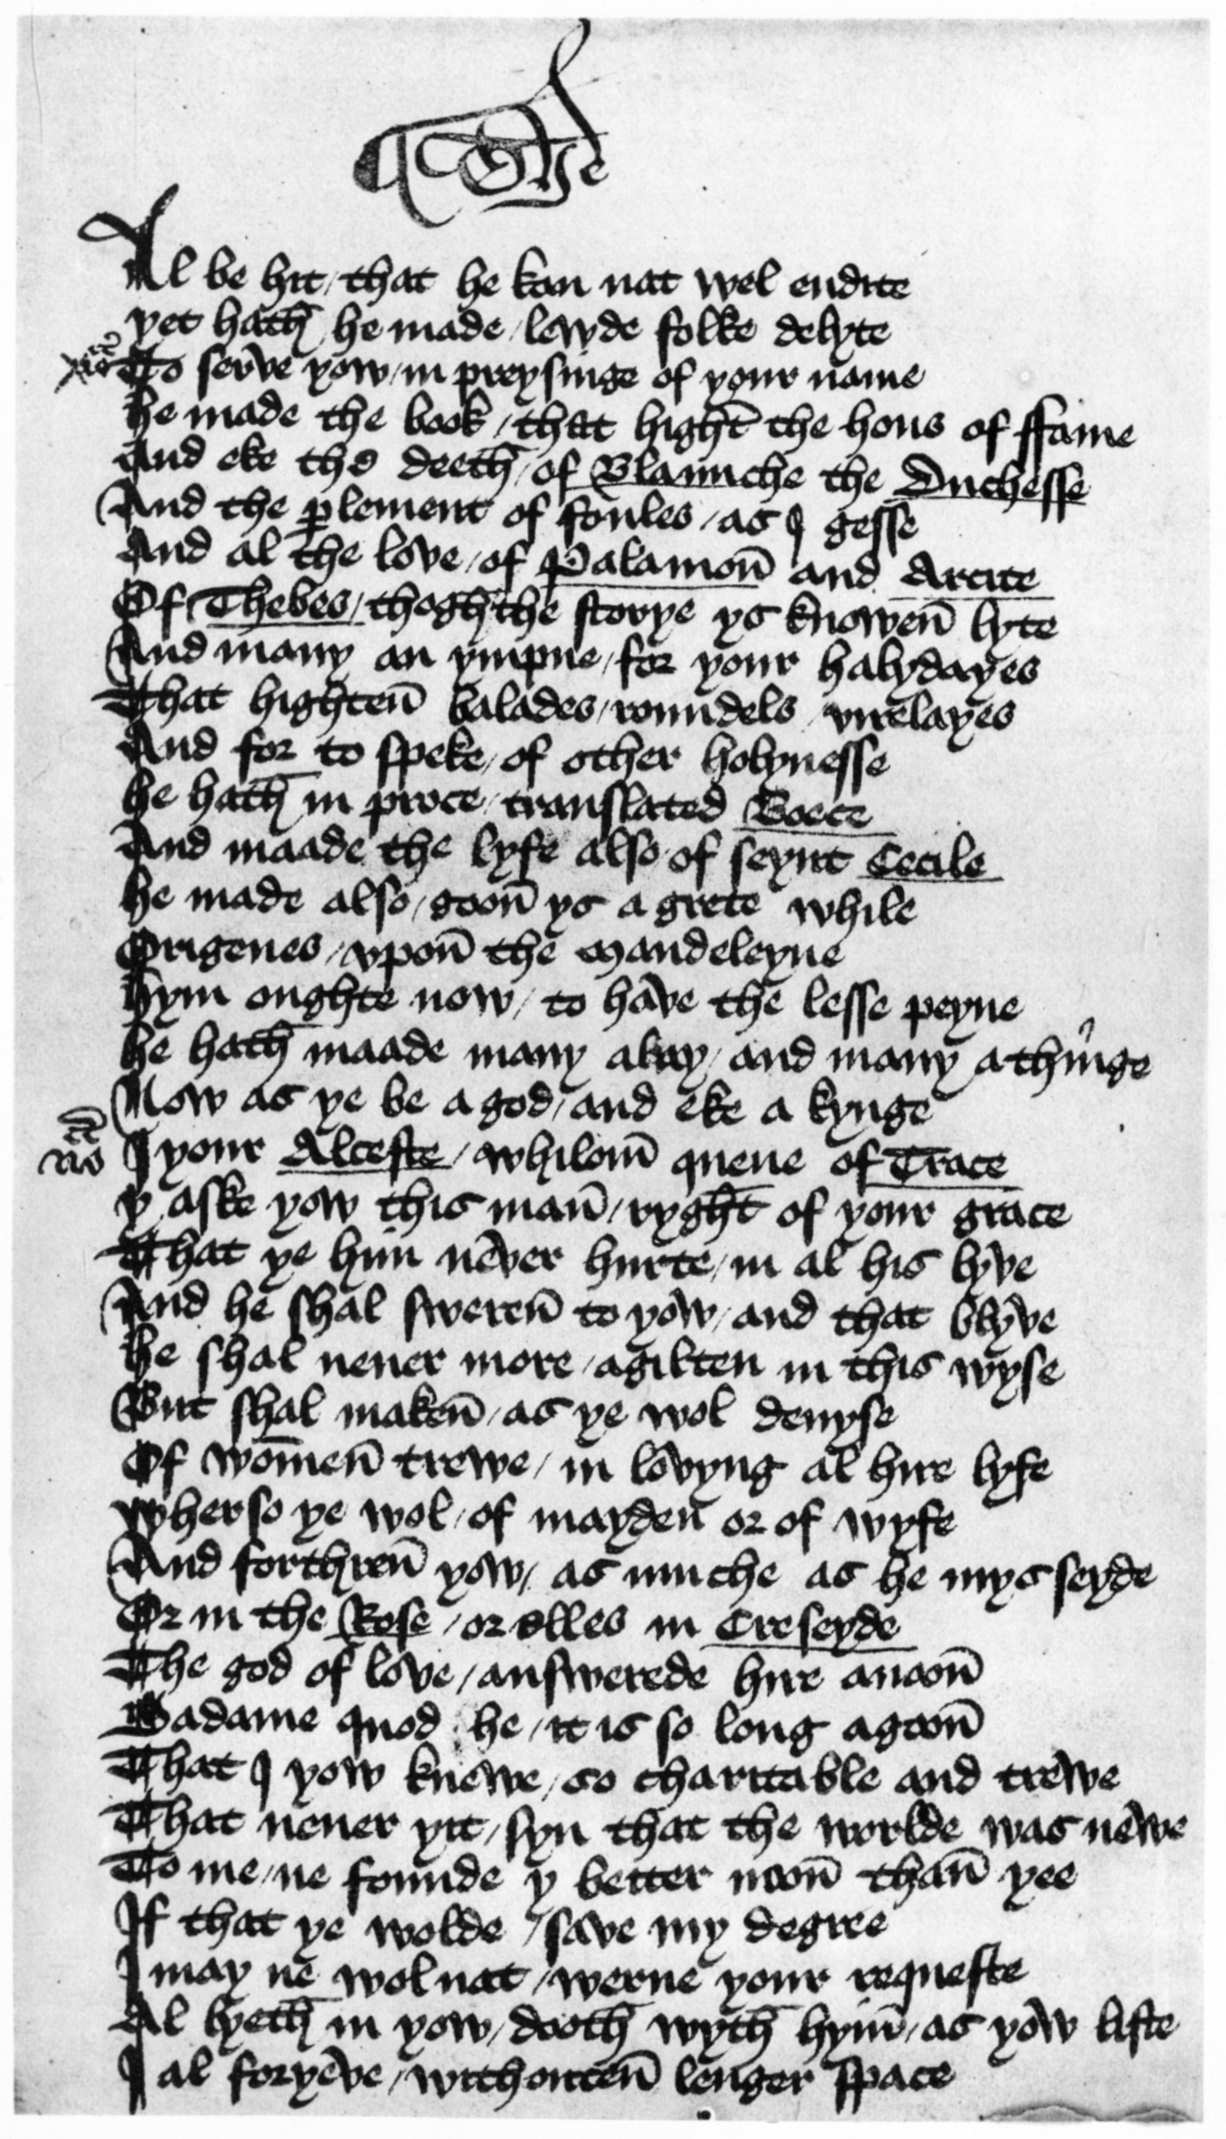 Al be hit / that he kan nat wel endite
yet hath he made / lewde folke delyte
To serve yow / in preysinge of your name
he made the book / that hight the hous of ffame
And eke the deeth / of Blaunche the Duchesse
And the plement of foules / as I gesse
And al the love / of Palamon̄ and Arcite
Of Thebes / thogh the storye ys knowen̄ lyte
And many an ympne / for your halydayes
That highten̄ balades / roundels / virelayes
And for to speke / of other holynesse
he hath in proce / translated Boece
And maade the lyfe also / of seynt Cecile
he made also / goon̄ ys a grete while
Origenes / vpon̄ the Maudeleyne
hym oughte now / to have the lesse peyne
he hath maade many a lay / and many a thinge
Now as ye be a god / and eke a kynge
I your Alceste / whilom̄ quene of Trace
y aske yow this man̄ / ryght of your grace
That ye him never hurte / in al his lyve
And he shal sweren̄ to yow / and that blyve
he shal neuer more / agilten in this wyse
But shal maken̄ / as ye wol deuyse
Of wom̄en̄ trewe / in lovyng al hire lyfe
wherso ye wol / of mayden or of wyfe
And forthren̄ yow / as muche as he mysseyde
Or in the Rose / or elles in Creseyde
The god of love / answerede hire anoon̄
Madame quod he / it is so long agoon̄
That I yow knewe / so charitable and trewe
That neuer yit / syn that the worlde was newe
To me / ne founde y better noon̄ than̄ yee
If that ye wolde / save my degree
I may ne wol nat / werne your requeste
Al lyeth in yow / dooth wyth hym̄ / as yow liste
I al foryeve / withouten̄ lenger space